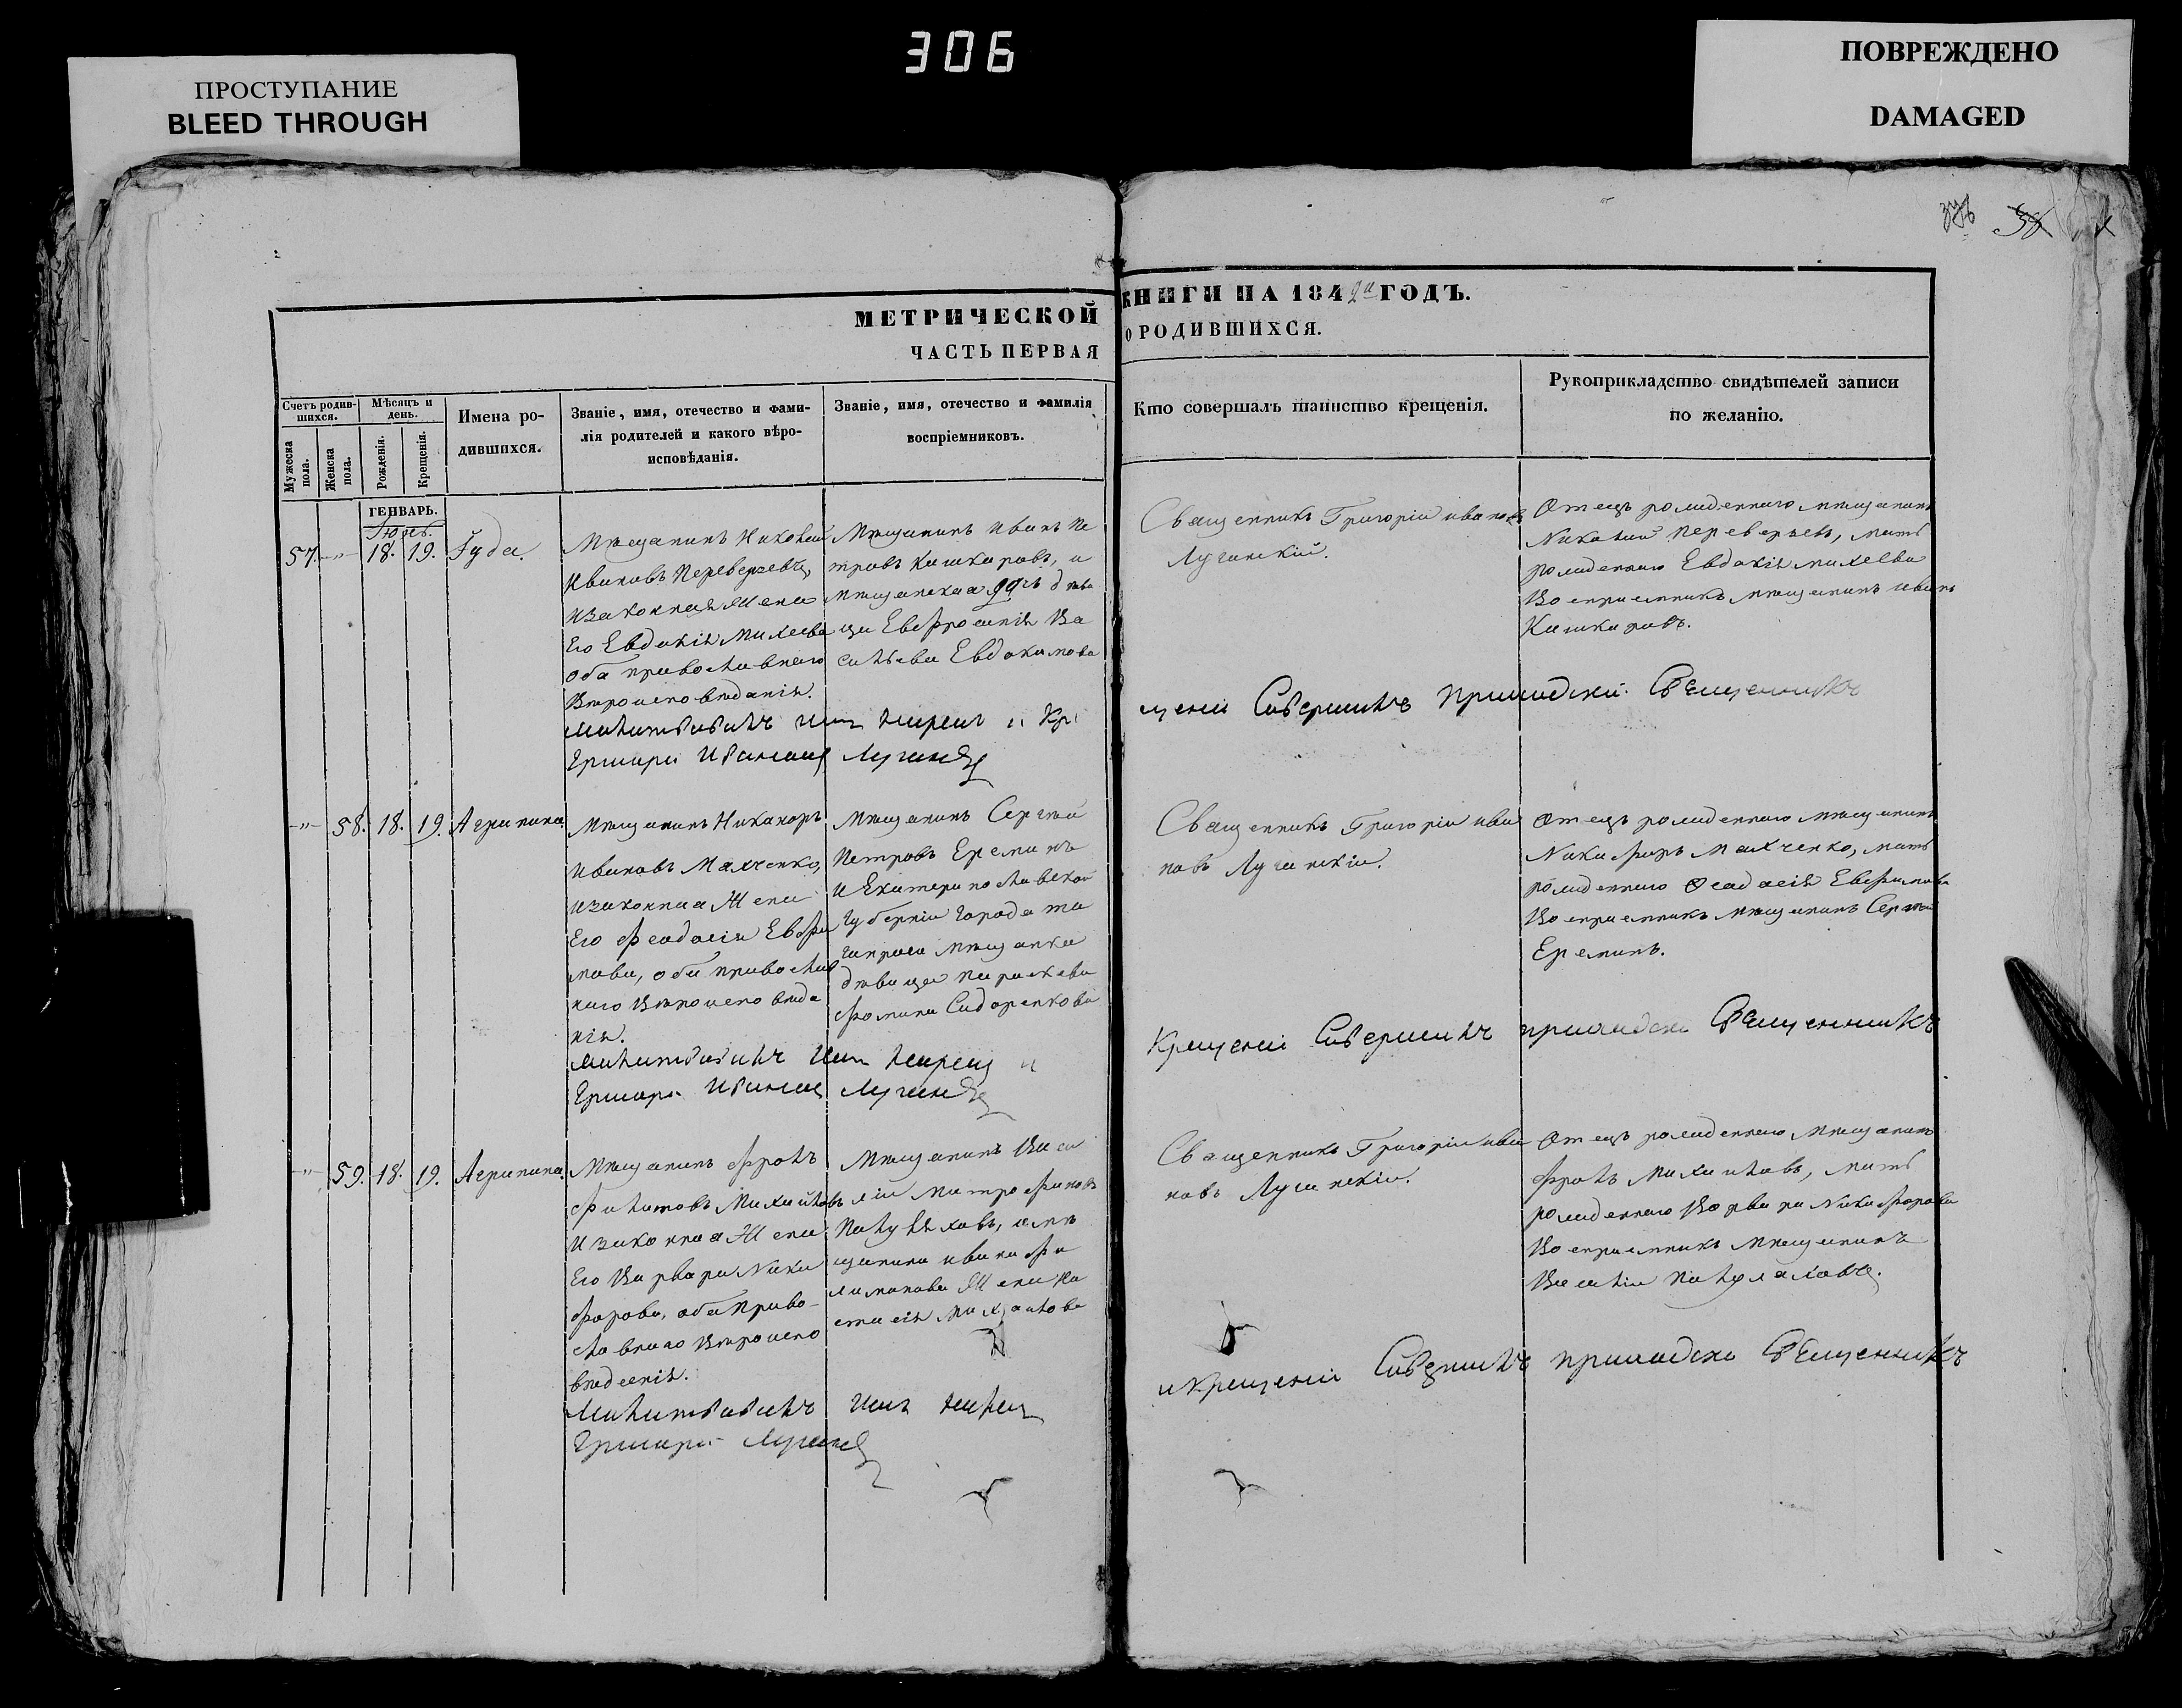 306
ПРОСТУПАНИЕ
BLEED THROUGH
ПОВРЕЖДЕНО
DAMAGED
МЕТРИЧЕСКОЙ
КНИГИ НА 1842й ГОДЪ.
ЧАСТЬ ПЕРВАЯ
О РОДИВШИХСЯ.
Счетъ родив-
шихся.
Мужеска
пола.
Женска
пола.
Мѣсяцъ и
день.
Рожденія.
Крещенія.
Имена ро-
дившихся.
Званіе, имя, отечество и фами-
лія родителей и какого вѣро-
исповѣданія.
Званіе, имя, отечество и фамилія
воспріемниковъ.
Кто совершалъ таинство крещенія.
Рукоприкладство свидѣтелей записи
по желанію.
ГЕНВАРЬ.
57. -"- 18. 19. Іуда.
Мѣщанинъ Николай
Ивановъ Переверзевъ,
изаконная жена
Его Евдокія михеева
оба православнаго
Вѣроисповѣданія.
Мѣщанинъ иванъ Пе
тровъ Кашкаровъ, и
мѣщанская дочь дѣви
ца Евфросинія Ва
сильева Евдокимова
Священникъ Григорій ивановъ
Лугинскій.
Отецъ рожденнаго мѣщанинъ
Николай Переверзевъ, мать
рожденнаго Евдокія михеева
Воспріемникъ мѣщанинъ иванъ
Кашкаровъ.
Молитвовалъ имя нарекъ и Кре
щеніе Совершилъ приходскій Священникъ
Григорій Ивановъ Лугинскій
-"- 58. 18. 19. Агрипина.
Мѣщанинъ Никаноръ
Ивановъ Малченко,
изаконная жена
Его Феодосія Евфи
мова, оба православ
наго Вѣроисповѣда
нія.
Мѣщанинъ Сергѣй
Петровъ Ереминъ
и Екатеринославской
губерніи города та
ганрога мѣщанка
дѣвица Параскева
Фомина Сидоренкова
Священникъ Григорій ива
новъ Лугинскій.
Отецъ рожденнаго мѣщанинъ
Малченко, мать
рожденнаго Феодосія Евфимова
Воспріемникъ мѣщанинъ Сергѣй
Ереминъ.
Молитвовалъ имя нарекъ и
Крещеніе Совершилъ приходскій Священникъ
Григорій Ивановъ Лугинскій
-"- 59. 18. 19. Агрипина.
Мѣщанинъ Фролъ
Филитовъ Михайловъ
изаконная жена
Его Варвара Ники
форова, оба Право-
славнаго Вѣроиспо
вѣданія.
Мѣщанинъ Васи
лій Митрофановъ
имѣ
щанина ивана Фи
лимонова жена На
стасія Михайлова
Священникъ Григорій ива
новъ Лугинскій.
Отецъ рожденнаго мѣщанинъ
Фролъ Михайловъ, мать
рожденнаго Варвара Никифорова
Воспріемникъ мѣщанинъ
Василій
Молитвовалъ имя нарекъ
и Крещеніе Совершилъ приходскій Священникъ
Григорій Лугинскій